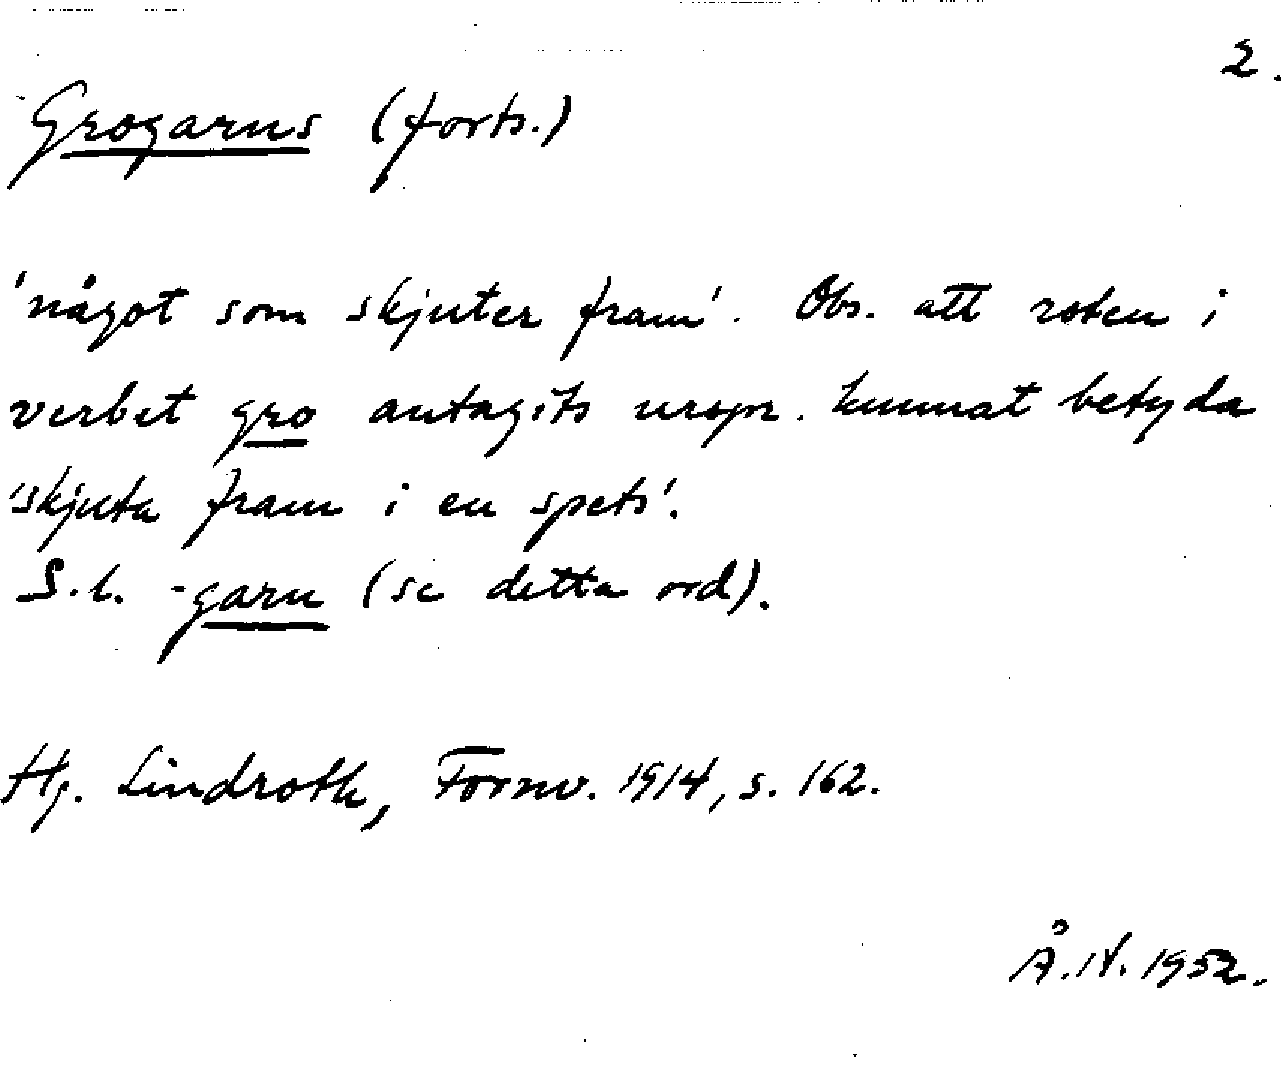 2.
Grogarns (forts.)
'något som skjuter fram'. Obs. att roten i
verbet gro antagits urspr. kunnat betyda
'skjuta fram i en spets'.
S.l. -garn (se detta ord).
Hj. Lindroth, Fornv. 1914, s. 162.
Å.N. 1952.